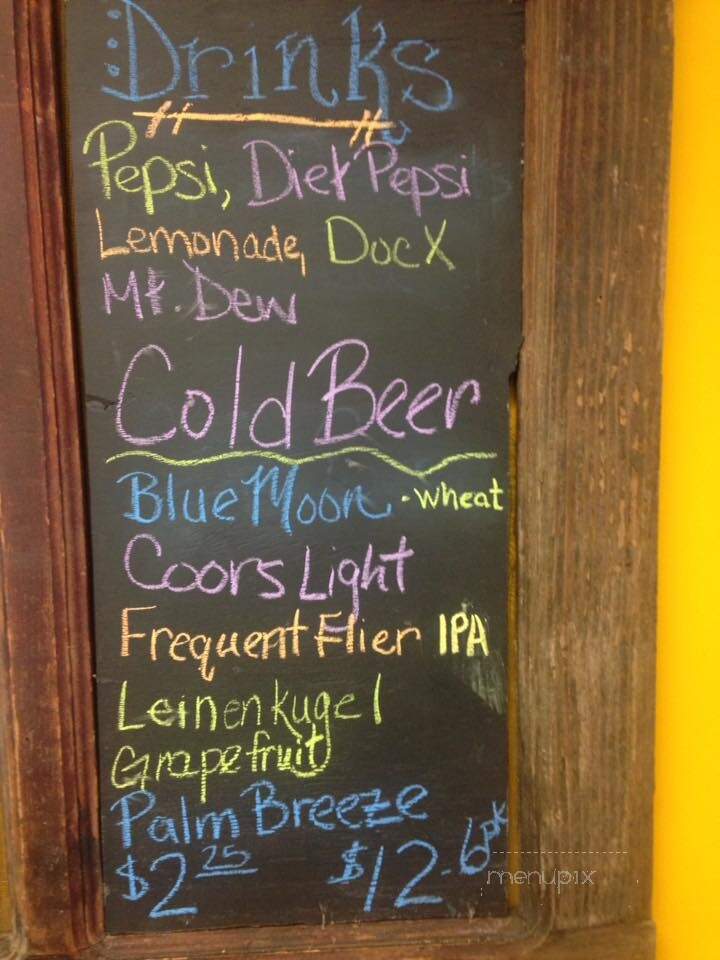 Drinks
Pepsi, Diet Pepsi
Lemonade, Doc X
Mt. Dew
Cold Beer
Blue Moon - wheat
Coors Light
Frequent Flier IPA
Leinenkugel
Grapefruit
Palm Breeze
$2 25 $12 - 6pk
menupix